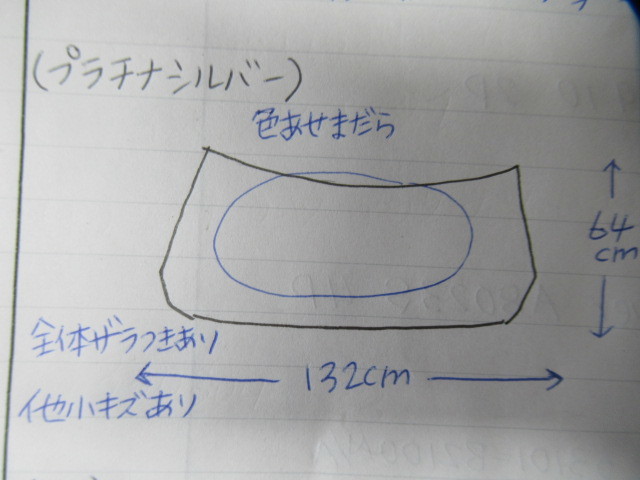 (プラチナシルバー)
色あせまだら
64
cm
全体ザラつきあり
132cm
他小キズあり